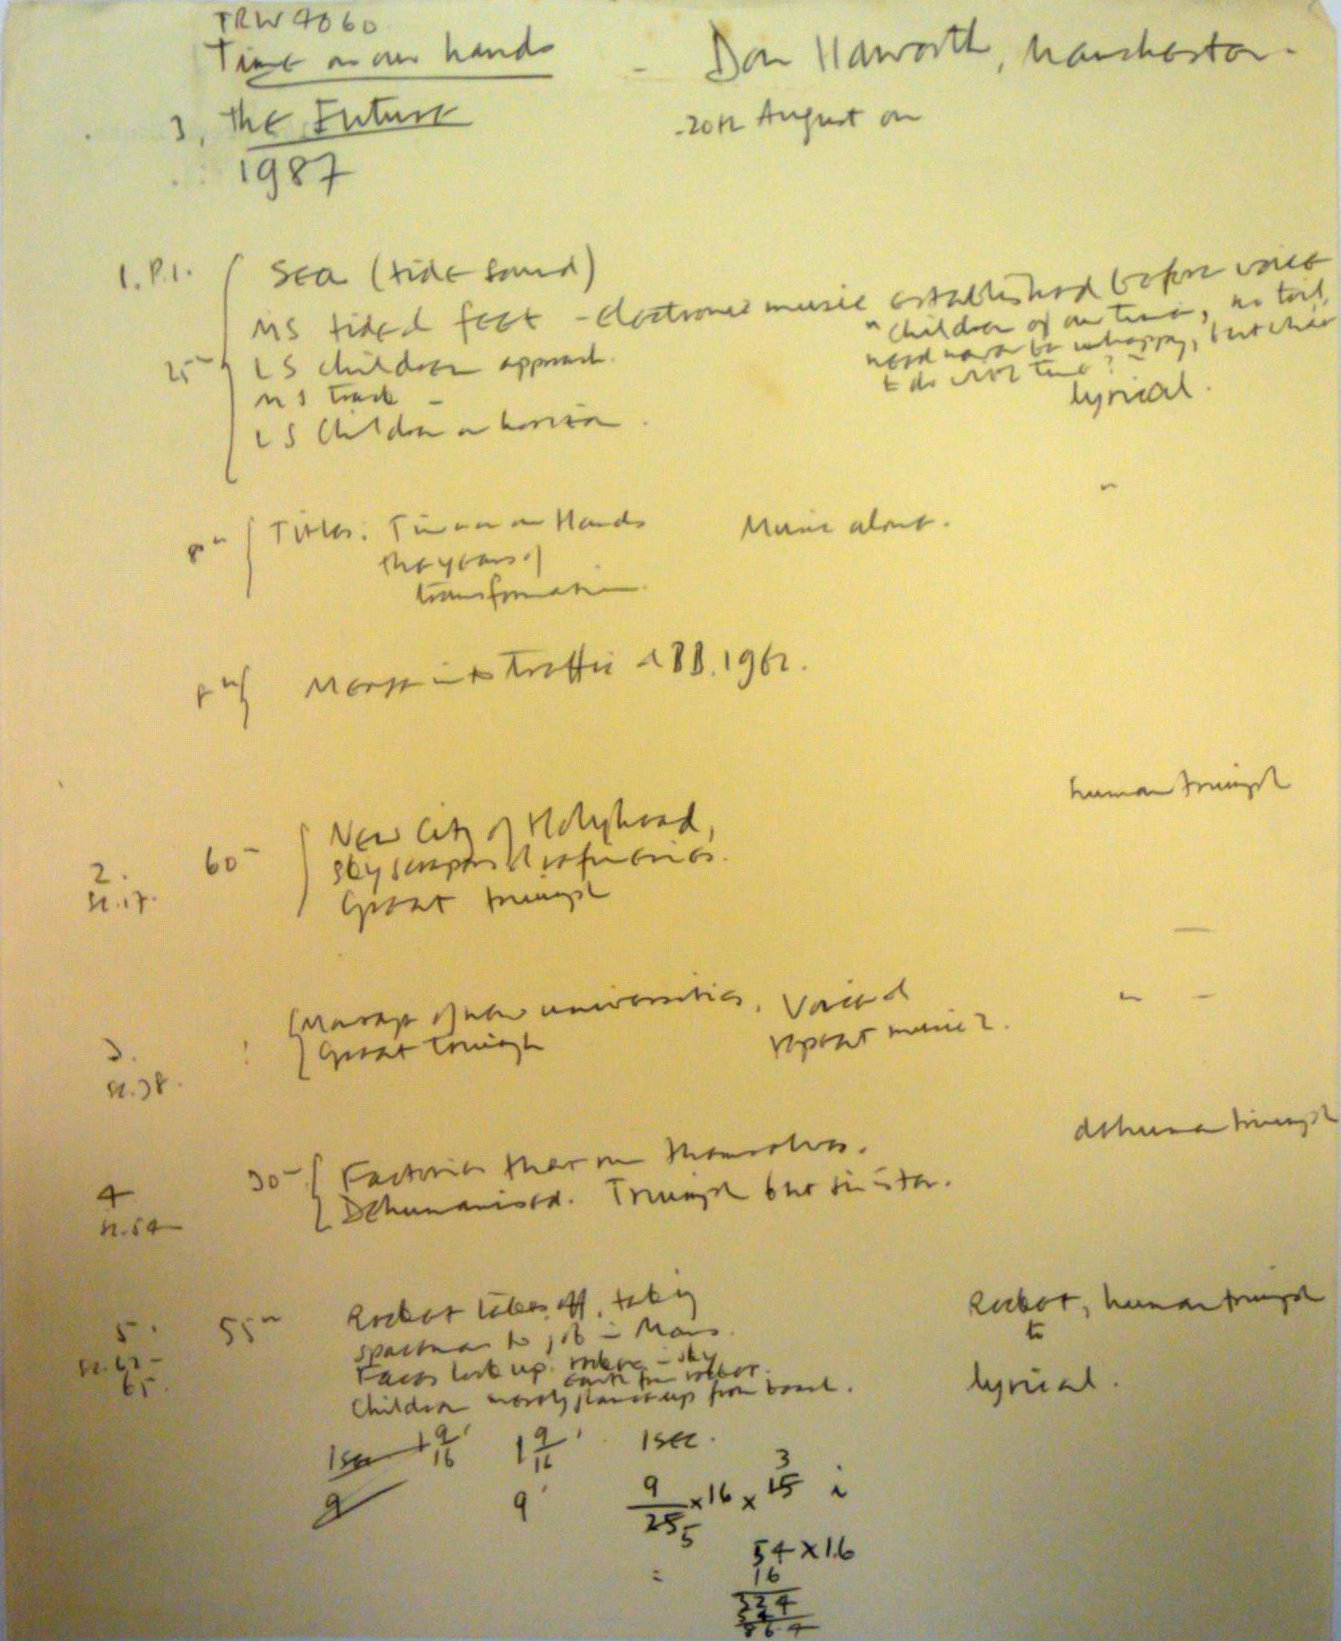 TRW 4060
Time on our hands - Don Haworth, Manchester.
3, The Future 20th August on
1987
1. P.1. Sea (tide sound)
MS tided feet - electronic music established before voice
"Children of our time, no toil,
need never be unhappy, but what
to do with time?"
25" LS children approach.
MS track -
lyrical.
LS Children on horizon.
8" Titles: Time on our Hands Music alone.
the years of
transformation.
8" Merge into traffic 1962.
human triumph
2. 60" New City of Holyhead,
skyscrapers & refineries.
sc.17. Great triumph
3. of new universities, Voice &
Great triumph repeat music 2.
sc.38.
dehuman triumph
4 30" Factories that run themselves.
sc.54 Dehumanised. Triumph but sinister.
5. 55" Rocket takes off, taking Rocket, human triumph
spaceman to job in Mars. to
sc.62-
65. Faces look up. sky
earth from rocket. lyrical.
Children merely glance up from beach.
1sec 1 9/16' 1 9/16' 1sec.
9 9' 9/25 5 x 16 x 15 3
= 54 x 16
16
324
54
864